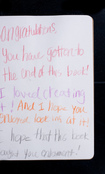 Congratulations
You have gotten to
the end of this book!
I loved creating
it! And I hope you
looking at it!
I hope that the book